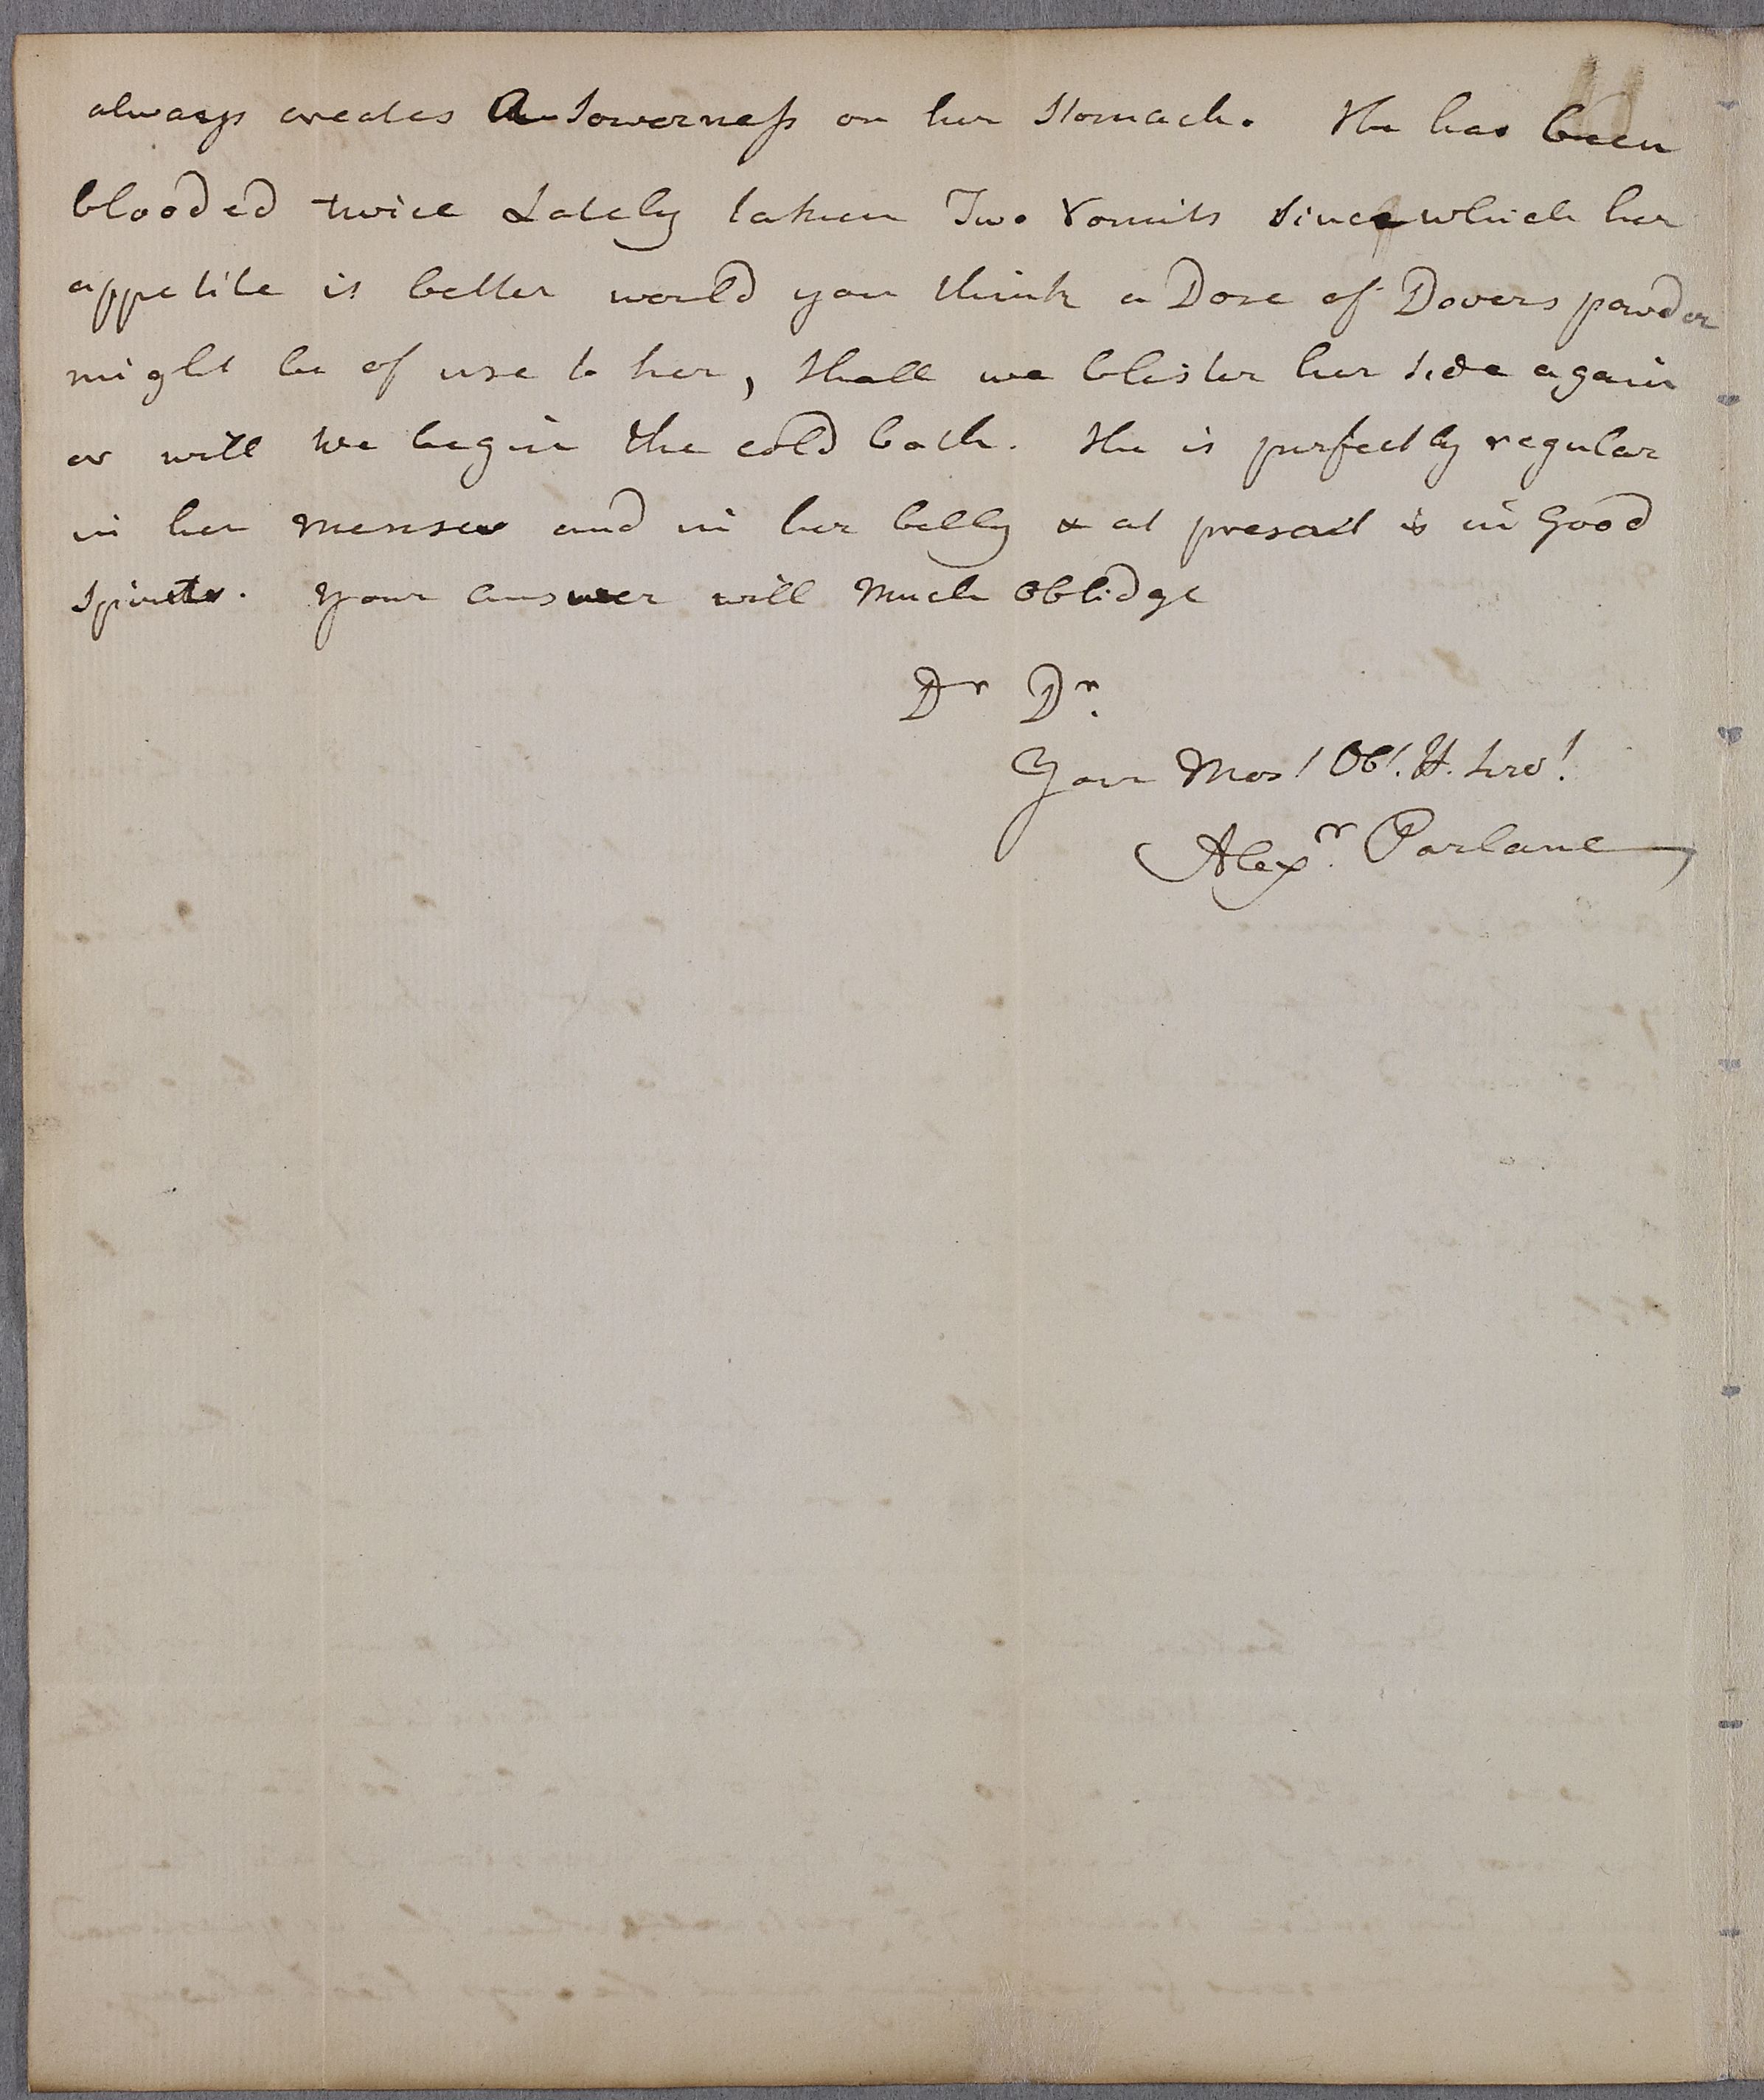 always creates a sowerness on her stomach. She has been
blooded twice Lately taken Two vomits since which her
appetite is better would you think a Dose of Dovers powder
might be of use to her, shall we blister her side again
or will we begin the cold bath. She is perfectly regular
in her menses and in her belly & at present is in Good
spirits. your answer will Much Oblidge
Dr Dr.
Your Most Obt. H. Servt.
Alexr. Parlane